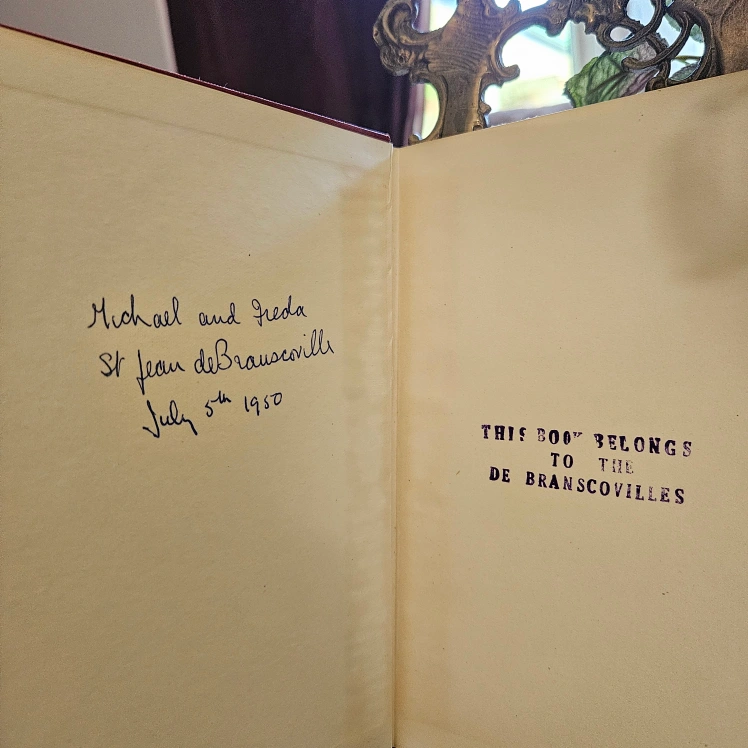 Michael and Freda
St Jean deBranscoville
July 5th 1950
THIS BOOK BELONGS
TO THE
DE BRANSCOVILLES